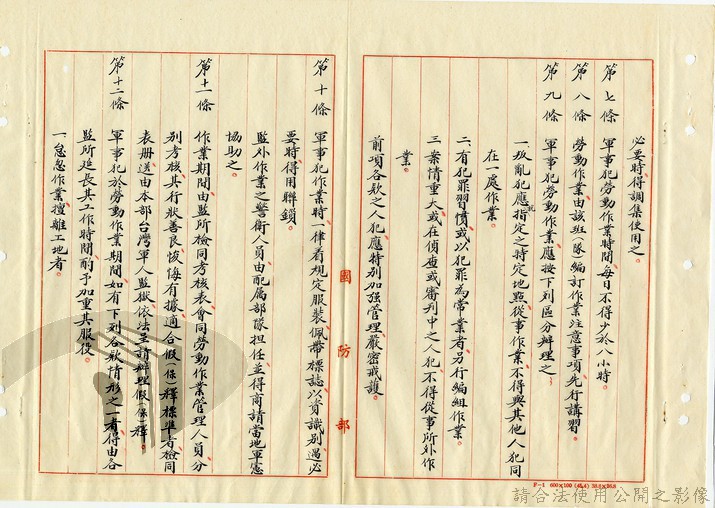 必要時得調集使用之。
第七條　軍事犯勞動作業時間、每日不得少於八小時。
第八條　勞動作業由該班(隊)編訂作業注意事項先行講習。
第九條　軍事犯勞動作業應按下列區分辦理之:
一叛亂犯應指定之特定地點從事作業、不得與其他人犯同
在一處作業。
二有犯罪習慣或以犯罪為常業者另行編組作業。
三案情重大或在偵查或審判中之人犯不得從事所外作
業。
前項各款之人犯應特別加強管理嚴密戒護。
國防部
第十條　軍事犯作業時一律着規定服裝佩帶標誌以資識別遇必
要時得用聯鎖。
監外作業之警衛人員由配屬部隊担任並得商請當地軍憲
協助之。
第十一條　作業期間由監所檢同考核表會同勞動作業管理人員分
別考核其行狀善良、悛悔有據適合假(保)釋標準者檢同
表册送由本部台灣軍人監獄依法呈請辦理假(保)釋。
第十二條　軍事犯於勞動作業期間如有下列各款情形之一者得由各
監所延長其工作時間酌予加重其服役。
一怠忽作業擅離工地者。
F-1 600×100
請合法使用公開之影像